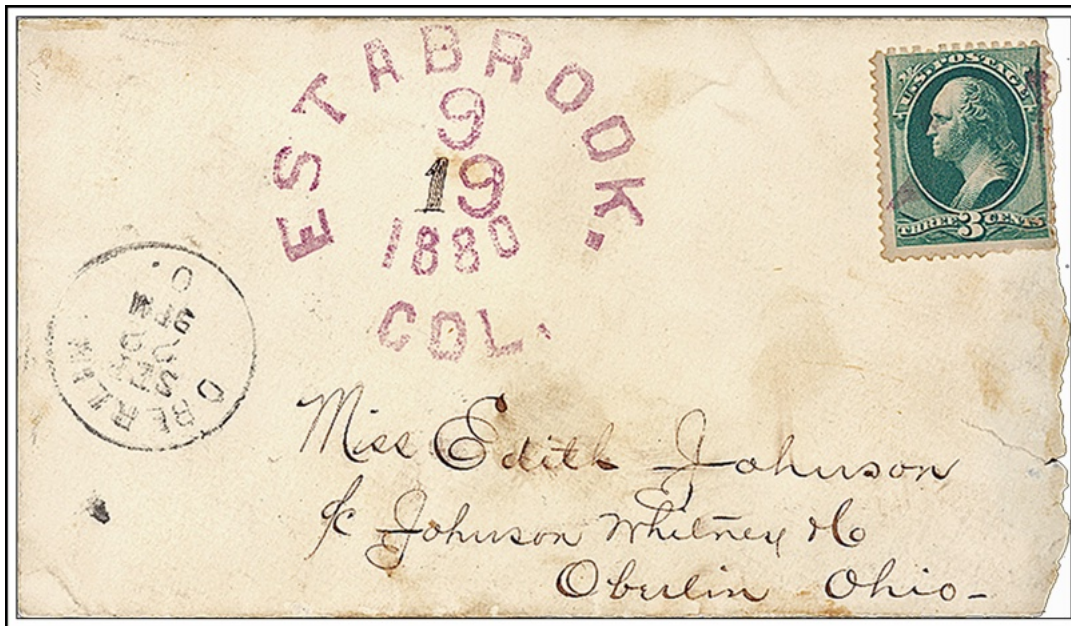 ESTABROOK.
9
19
1880
COL.
U.S. POSTAGE
THREE 3 CENTS
OBERLIN
SEP
9 PM
O.
Miss Edith Johnson
c/o Johnson Whitney & Co
Oberlin Ohio-